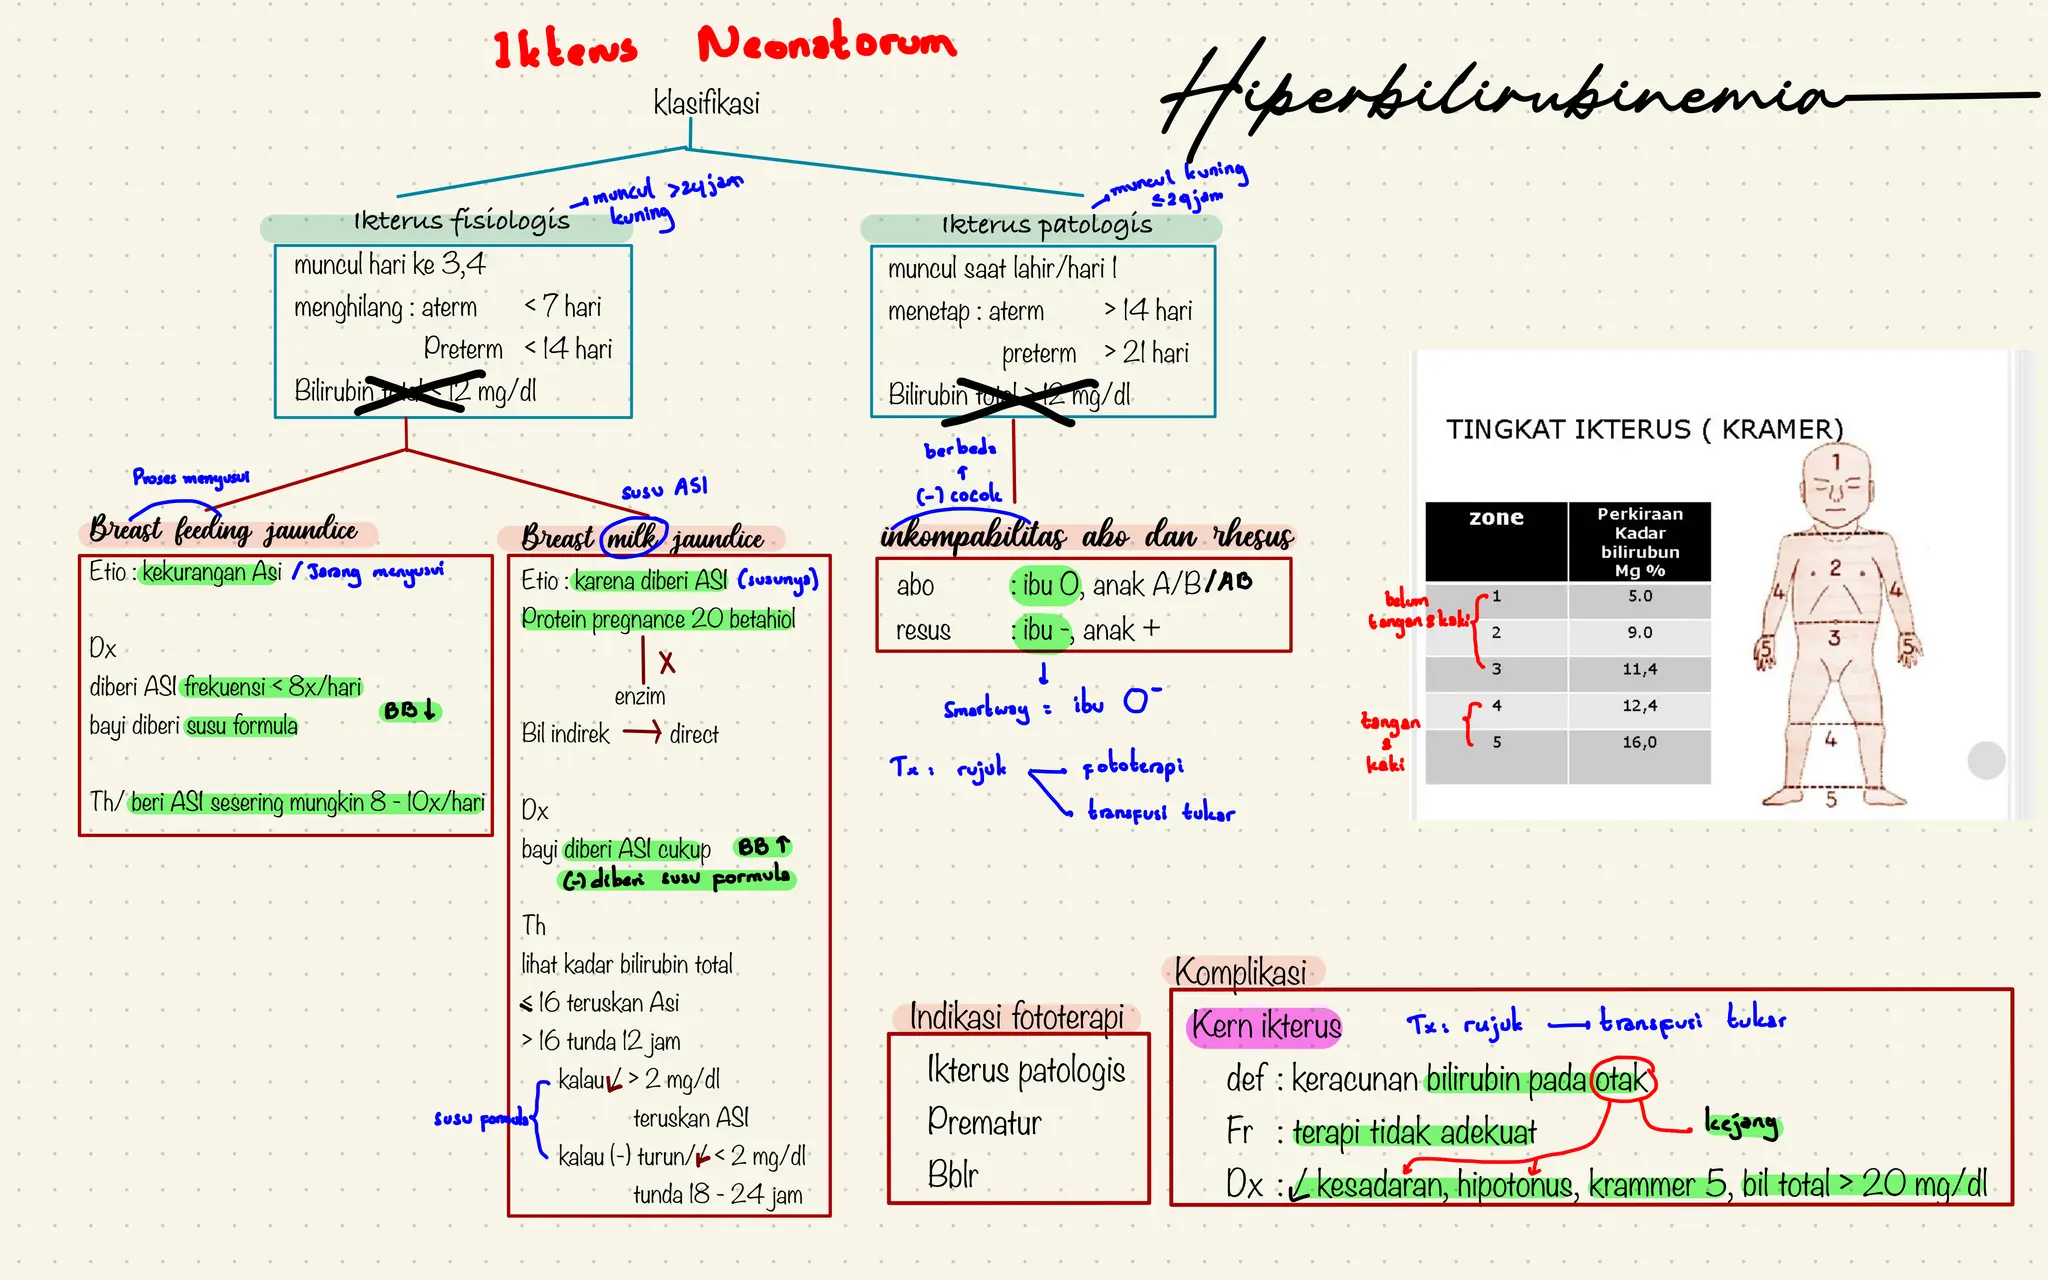 Ikterus Neonatorum
Hiperbilirubinemia
klasifikasi
Ikterus fisiologis
→ muncul >24 jam
kuning
muncul hari ke 3,4
menghilang : aterm < 7 hari
Preterm < 14 hari
Bilirubin total < 12 mg/dl
Ikterus patologis
→ muncul kuning
≤24 jam
muncul saat lahir/hari 1
menetap : aterm > 14 hari
preterm > 21 hari
Bilirubin total > 12 mg/dl
Proses menyusui
Breast feeding jaundice
Etio : kekurangan Asi / Jarang menyusui
Dx
diberi ASI frekuensi < 8x/hari
bayi diberi susu formula
BB ↓
Th/ beri ASI sesering mungkin 8 - 10x/hari
susu ASI
Breast milk jaundice
Etio : karena diberi ASI (susunya)
Protein pregnance 20 betahiol
X
enzim
Bil indirek → direct
Dx
bayi diberi ASI cukup BB ↑
(-) diberi susu formula
Th
lihat kadar bilirubin total
≤ 16 teruskan Asi
> 16 tunda 12 jam
kalau ↙ > 2 mg/dl
teruskan ASI
susu formula
kalau (-) turun/↙ < 2 mg/dl
tunda 18 - 24 jam
berbeda
↑
(-) cocok
inkompabilitas abo dan rhesus
abo : ibu O, anak A/B/AB
resus : ibu -, anak +
↓
Smartway = ibu O⁻
Tx : rujuk → fototerapi
→ transfusi tukar
TINGKAT IKTERUS ( KRAMER)
zone Perkiraan
Kadar
bilirubun
Mg %
1 5.0
2 9.0
3 11,4
4 12,4
5 16,0
belum
tangan & kaki
tangan
&
kaki
1
2
4 4
3
5 5
4
5
Indikasi fototerapi
Ikterus patologis
Prematur
Bblr
Komplikasi
Kern ikterus
Tx : rujuk → transfusi tukar
def : keracunan bilirubin pada otak
Fr : terapi tidak adekuat
kejang
Dx : ↙ kesadaran, hipotonus, krammer 5, bil total > 20 mg/dl